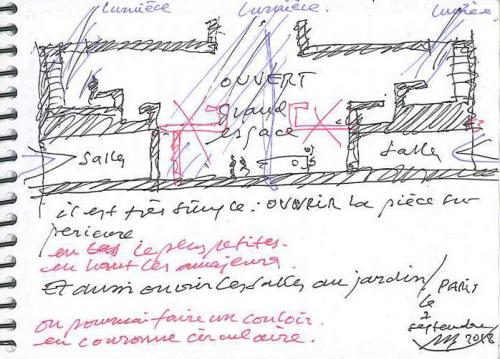 Lumière.
Lumière.
Lumière.
OUVERT
grand
espace
Salles
Salle
il est très simple: OUVRIR la pièce su-
perieure
en bas le plus petites.
en haut les
Et aussi ouvrir les salles au jardin/
PARIS
le
2
septembre
2018
on pourrai faire un couloir.
en couronne circulaire.